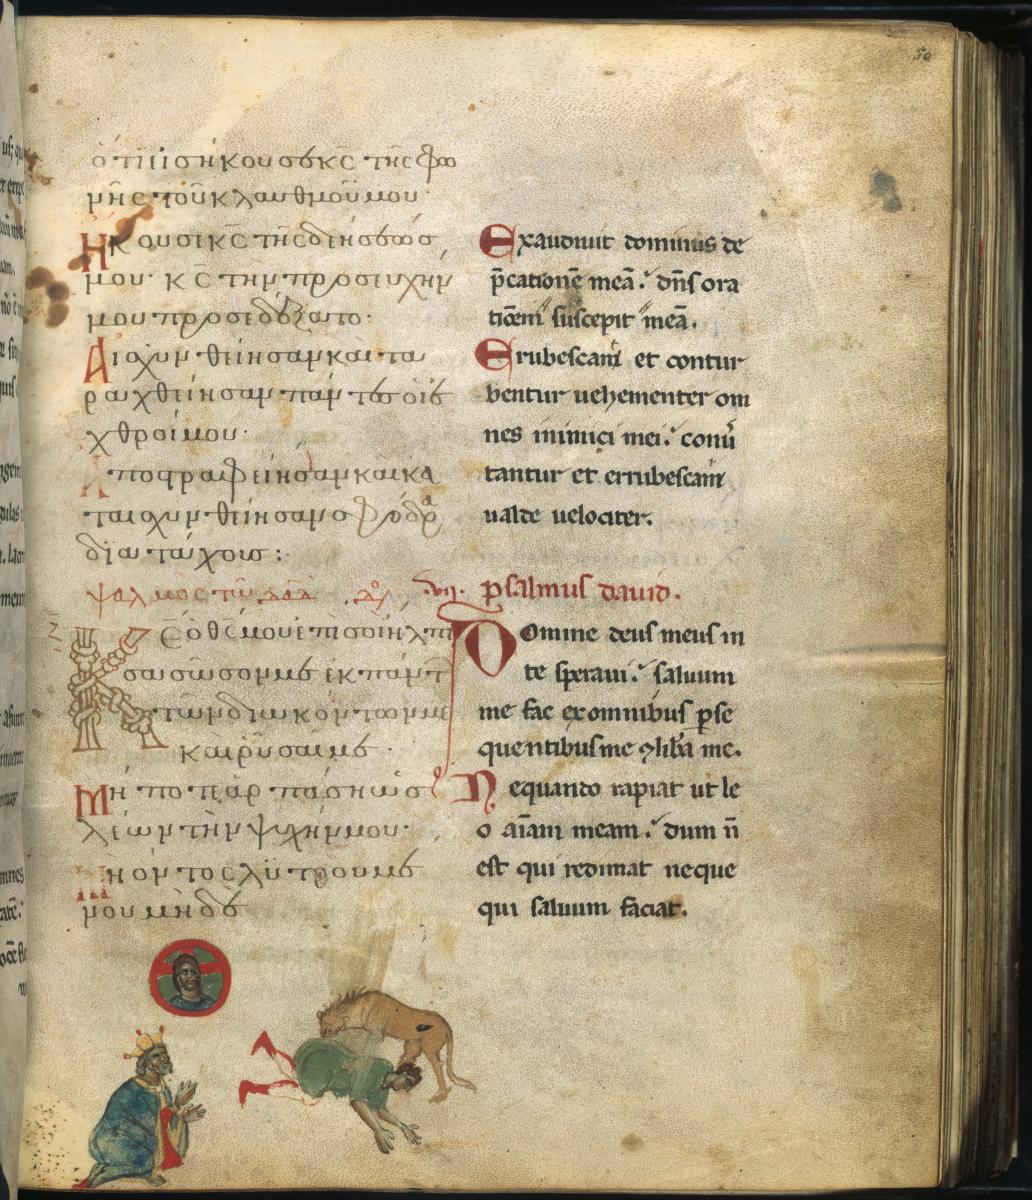 50
ὅτι ἰσήκουσε κ̅ς̅ τῆς φω
μῆς τοῦ κλαυθμοῦ μου·
Ἤκουσι κ̅ς̅ τῆς διήσεώς
μου· κ̅ς̅ τὴν προσευχήν
μου προσεδέξατο·
Αἰσχυνθείησαν καὶ τα
ραχθείησαν πάντες οἱ ἐ
χθροί μου·
Ἀποστραφείησαν καὶ κα
ταισχυνθείησαν σφόδρα
διὰ τάχους:
ψαλμὸς τῷ δα̅δ̅
Κ̅ε̅ ὁ θ̅ς̅ μου ἐπὶ σοὶ ἤλπι
σα σῶσον με ἐκ πάντ
των διωκόντων με
καὶ ῥῦσαι με·
Μήποτε ἁρπάσῃ ὡς
λέων τὴν ψυχήν μου·
μὴ ὄντος λυτρουμέ
μου μηδὲ
Exaudiuit dominus de
p̄cationē meā. dn̄s ora
tiōem suscepit meā.
Erubescant et contur
bentur uehementer om
nes inimici mei. conū
tantur et errubescant
ualde uelociter.
.vii. psalmus dauid.
Domine deus meus in
te speraui. saluum
me fac ex omnibus p̱se
quentibus me ꝯ lib̄a me.
Nequando rapiat ut le
o aīam meam. dum n̄
est qui redimat neque
qui saluum faciat.